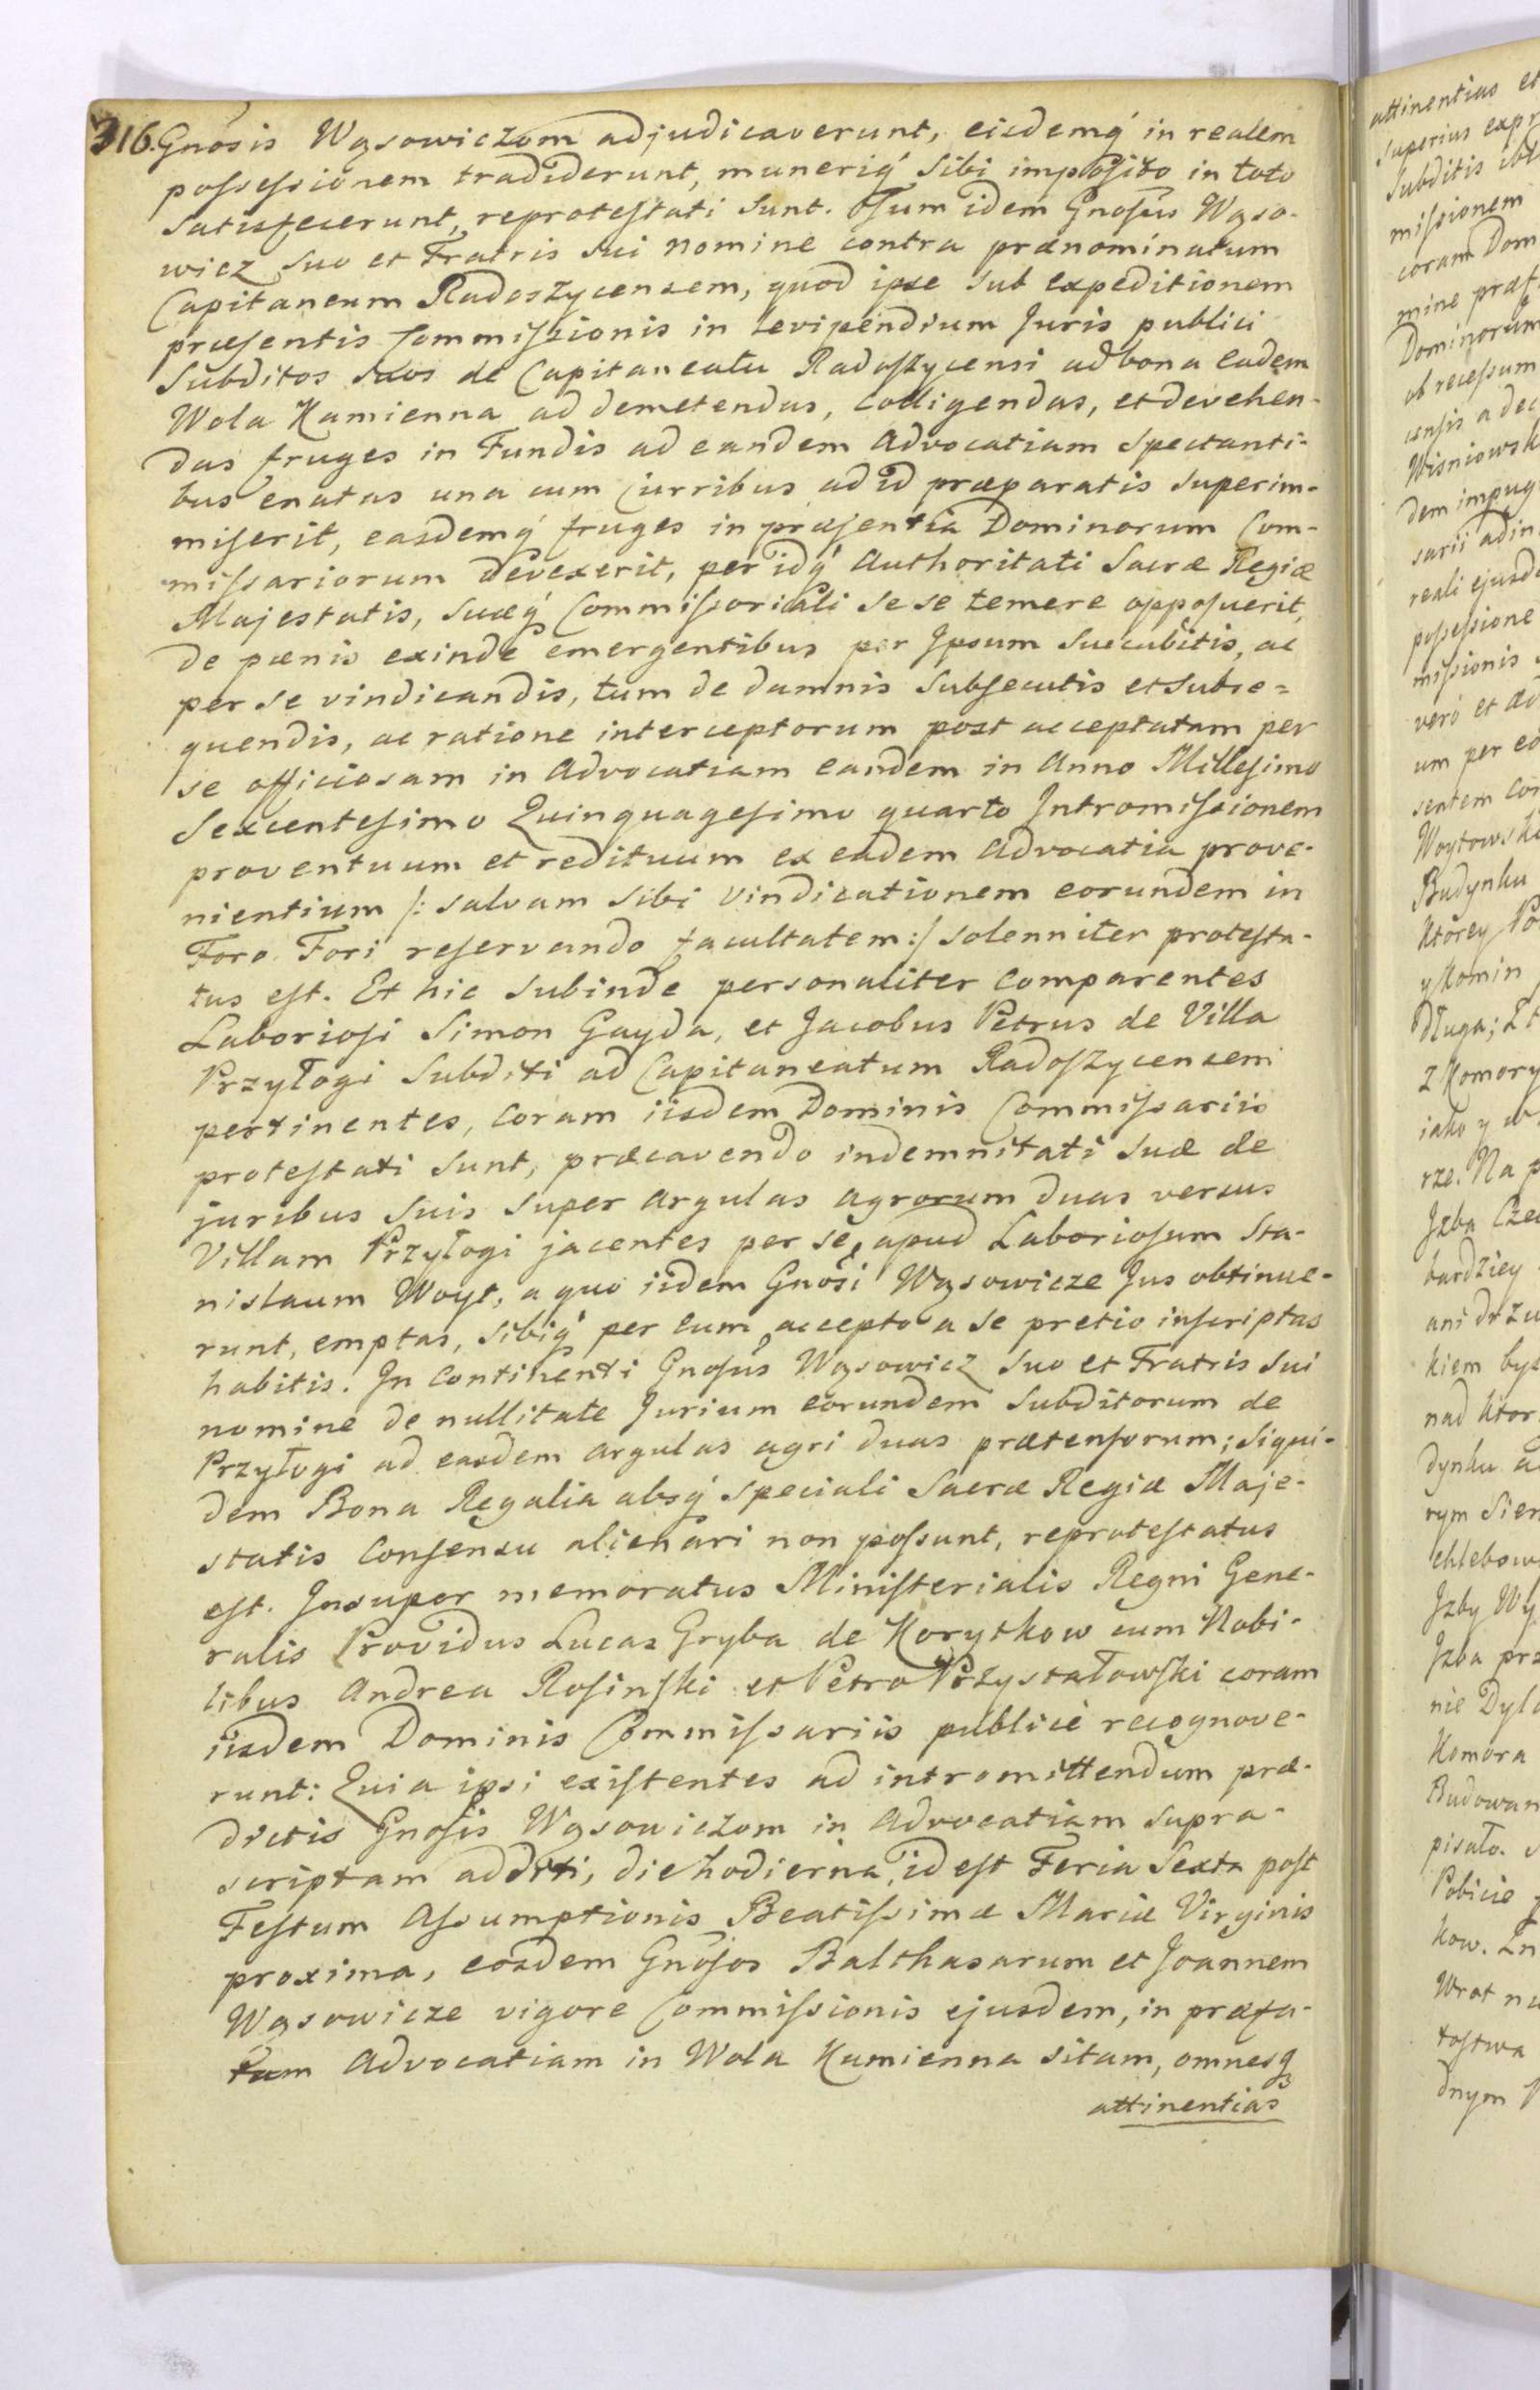 316. Gnosis Wąsowiczom adjudicaverunt, eisdemq́ in realem
possessionem tradiderunt, muneriq́ sibi imposito in toto
satisfecerunt, reprotestati sunt. Tum idem Gnosus Wąso-
wicz suo et Fratris sui nomine contra prænominatum
Capitaneum Radoszycensem, quod ipse sub expeditionem
præsentis Commissionis in levipendium Juris publici
Subditos suos de Capitaneatu Radoszycensi ad bona eadem
Wola Kamienna ad demetendas, colligendas, et devehen-
das fruges in Fundis ad eandem Advocatiam spectanti-
bus enatas una cum Curribus ad id præparatis superim-
miserit, easdemq́ fruges in præsentia Dominorum Com-
missariorum devexerit, per idq́ Authoritati Sacræ Regiæ
Majestatis, suæq́ Commissoriali sese temere opposuerit,
de pænis exinde emergentibus per Ipsum succubitis, ac
per se vindicandis, tum de damnis subsecutis et subse=
quendis, ac ratione interceptorum post acceptatam per
se officiosam in Advocatiam eandem in Anno Millesimo
Sexcentesimo Quinquagesimo quarto Intromissionem
proventuum et redituum ex eadem Advocatia prove-
nientium /: salvam sibi vindicationem eorundem in
Foro Fori reservando facultatem :/ solenniter protesta-
tus est. Et hic subinde personaliter comparentes
Laboriosi Simon Gayda, et Jacobus Petrus de Villa
Przyłogi Subditi ad Capitaneatum Radoszycensem
pertinentes, coram iisdem Dominis Commissariis
protestati sunt, præcavendo indemnitati suæ de
juribus suis super argulas agrorum duas versus
Villam Przyłogi jacentes per se, apud Laboriosum Sta-
nislaum Woyt, a quo iidem Gnosi Wąsowicze Jus obtinue-
runt, emptas, sibiq́ per eum accepto a se pretio inscriptas
habitis. In continenti Gnosus Wąsowicz suo et Fratris sui
nomine de nullitate Jurium eorundem Subditorum de
Przyłogi ad easdem argulas agri duas prætensorum; siqui-
dem Bona Regalia absq́ speciali Sacræ Regiæ Maje-
statis Consensu alienari non possunt, reprotestatus
est. Insuper memoratus Ministerialis Regni Gene-
ralis Providus Lucas Gryba de Korytkow cum Nobi-
libus Andrea Rosinski et Petro Przystałowski coram
iisdem Dominis Commissariis publice recognove-
runt: Quia ipsi existentes ad intromittendum præ-
dictis Gnosis Wąsowiczom in Advocatiam supra-
scriptam additi, die hodierna, id est Feria Sexta post
Festum Assumptionis Beatissimæ Mariæ Virginis
proxima, eosdem Gnosos Balthasarum et Joannem
Wąsowicze vigore Commissionis ejusdem, in præfa-
tam Advocatiam in Wola Kamienna sitam, omnesq
attinentias
attinentias et
superius expr
Subditis ibi
missionem
coram Dom
mine præf
Dominorum
ob recessum
censis a dec
Wisniowsk
dem impug
sarii ad in
reali ejusd
possessione
missionis
vero et ad
um per eo
sentem Com
Woytowski
Budynku
Ktorey Po
y Komin
Długa; Zt
z Komory
iako y w
rze. Na p
Izba Cze
bardziey
ani drzw
kiem by
nad ktor
dynku a
rym sien
chlebow
Izby Wy
Izba prz
nie Dyl
Komora
Budowan
pisało.
Pobicie
kow. In
Wrot n
tostwa
dnym